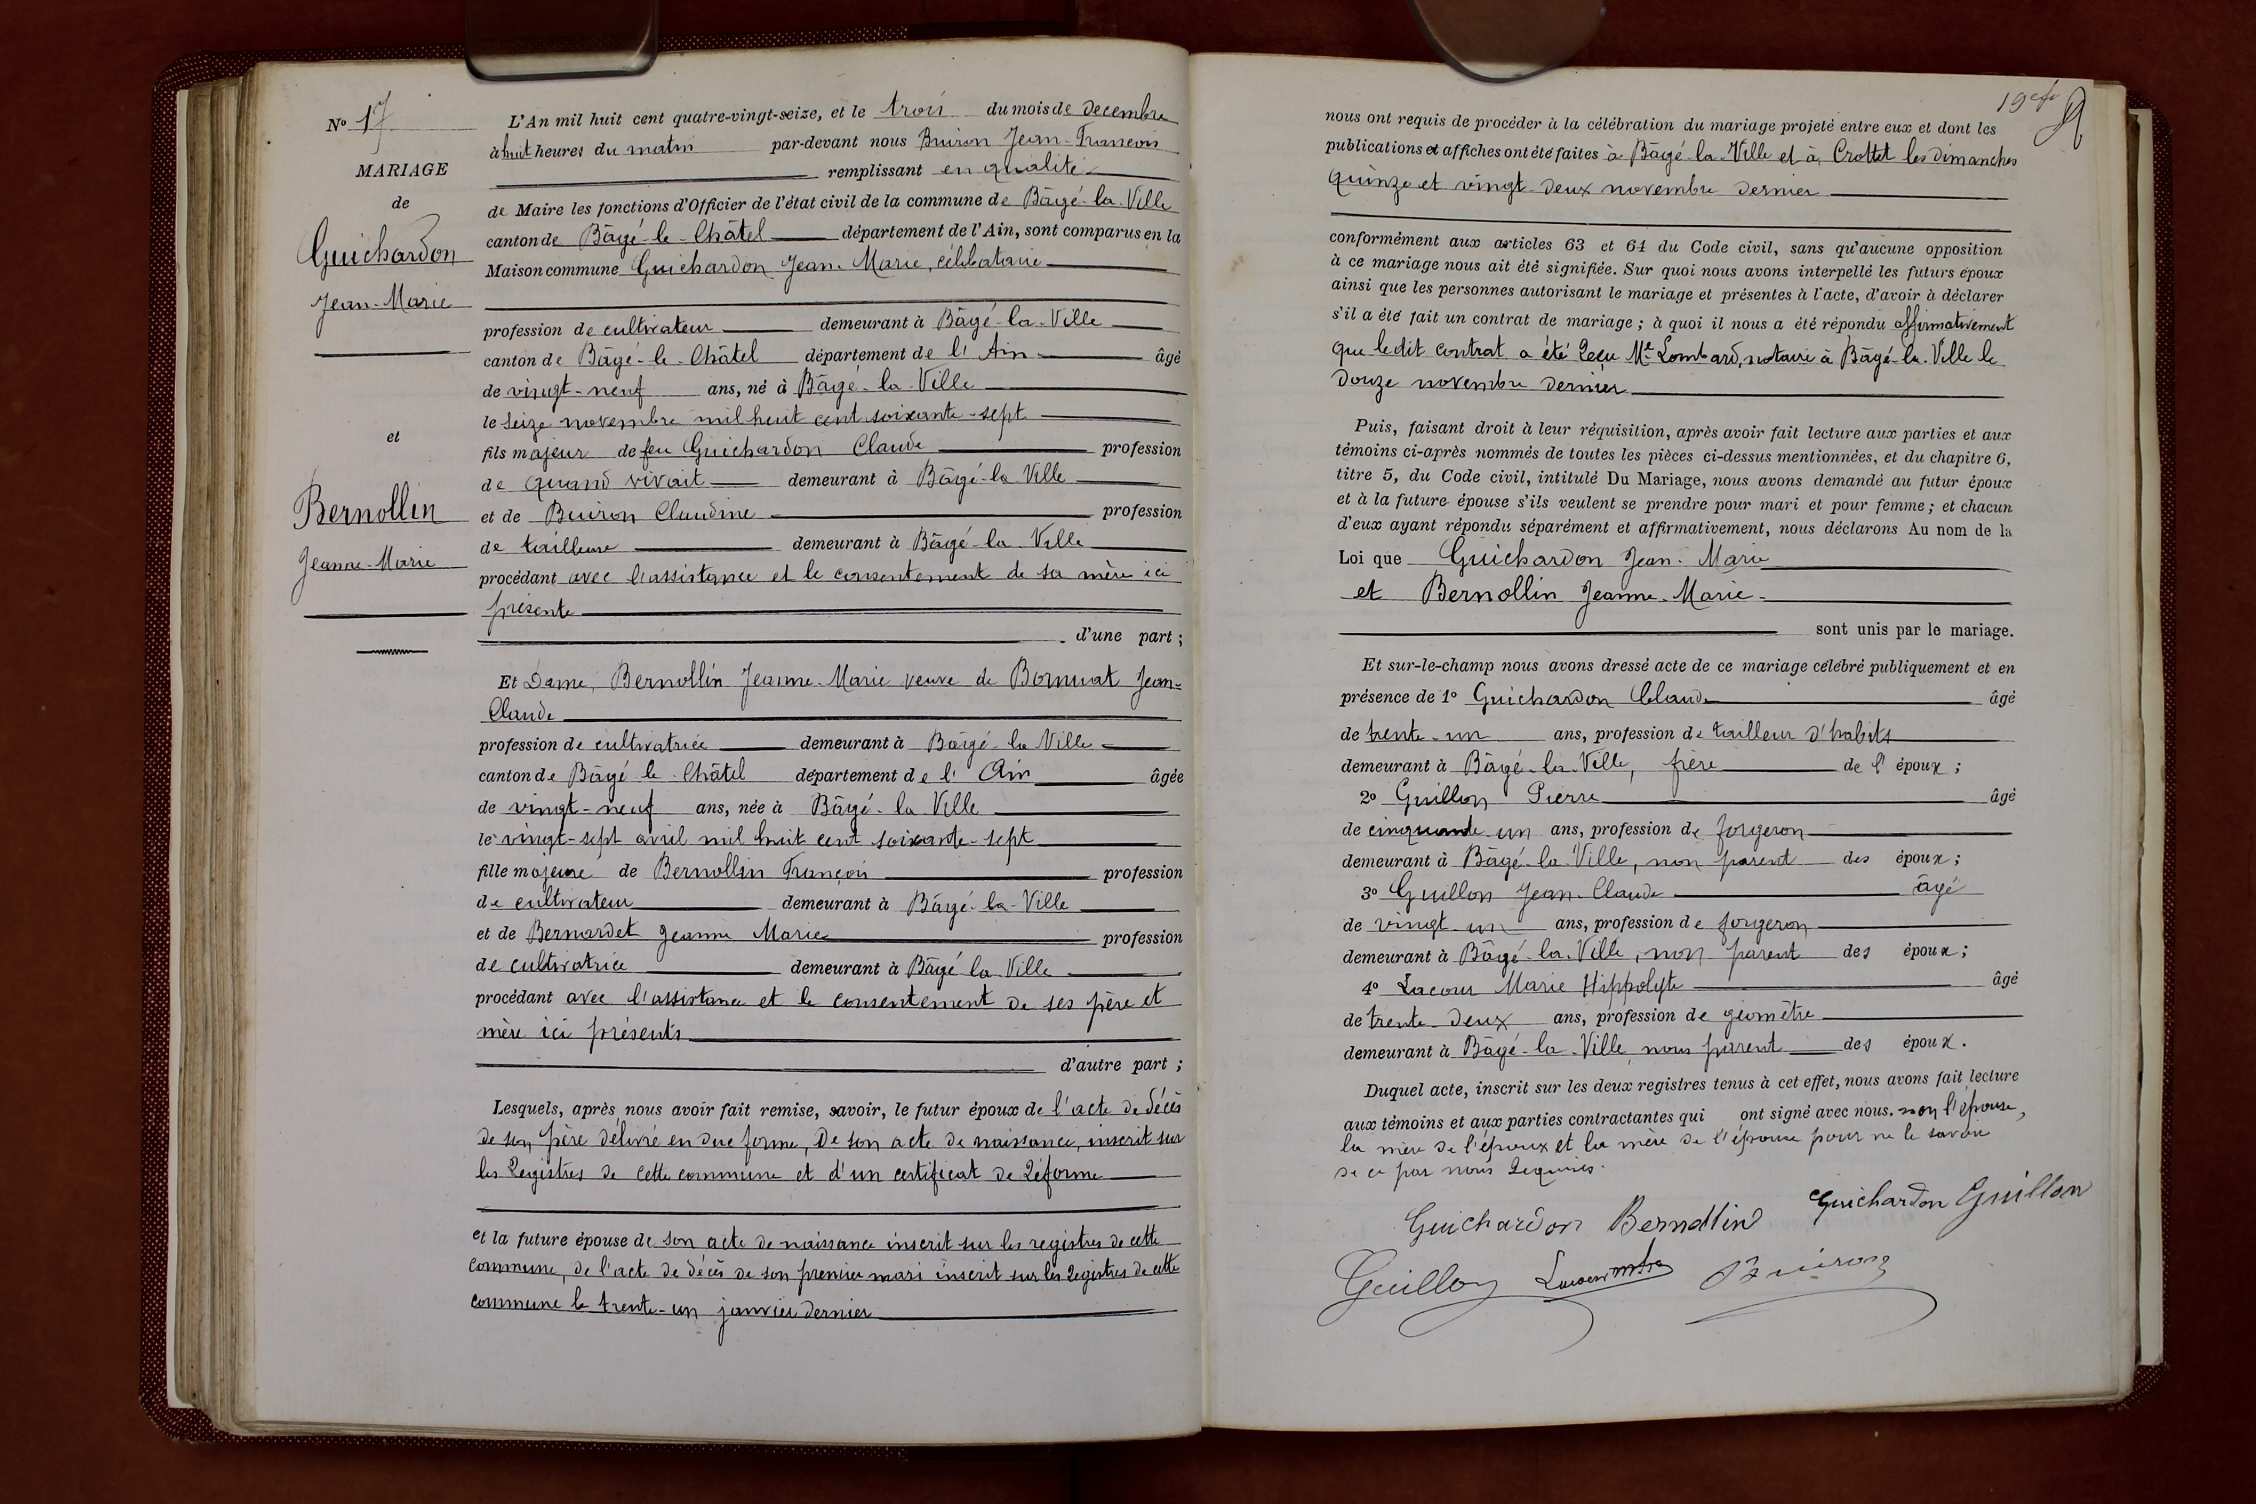 Nº 17
MARIAGE
de
Guichardon
Jean-Marie
et
Bernollin
Jeanne-Marie
L'An mil huit cent quatre-vingt-seize, et le trois du mois de decembre
à huit heures du matin par-devant nous Buiron Jean-François
remplissant en qualité
de Maire les fonctions d'Officier de l'état civil de la commune de Bâgé-la-Ville
canton de Bâgé-le-Châtel département de l'Ain, sont comparus en la
Maison commune Guichardon Jean-Marie, célibataire
profession de cultivateur demeurant à Bâgé-la-Ville
canton de Bâgé-le-Châtel département de l'Ain âgé
de vingt-neuf ans, né à Bâgé-la-Ville
le seize novembre mil huit cent soixante-sept
fils majeur de feu Guichardon Claude profession
de quand vivait demeurant à Bâgé-la-Ville
et de Buiron Claudine profession
de tailleuse demeurant à Bâgé-la-Ville
procédant avec l'assistance et le consentement de sa mère ici
présente
d'une part ;
Et Dame, Bernollin Jeanne-Marie veuve de Bonnat Jean-
Claude
profession de cultivatrice demeurant à Bâgé-la Ville
canton de Bâgé le-Châtel département de l'Ain âgée
de vingt-neuf ans, née à Bâgé-la Ville
le vingt-sept avril mil huit cent soixante-sept
fille majeure de Bernollin François profession
de cultivateur demeurant à Bâgé-la-Ville
et de Bernardet Jeanne Marie profession
de cultivatrice demeurant à Bâgé la Ville
procédant avec l'assistance et le consentement de ses père et
mère ici présents
d'autre part ;
Lesquels, après nous avoir fait remise, savoir, le futur époux de l'acte de décès
de son père délivré en due forme, de son acte de naissance, inscrit sur
les Registres de cette commune et d'un certificat de Réforme
et la future épouse de son acte de naissance inscrit sur les registres de cette
commune, de l'acte de décès de son premier mari inscrit sur les Registres de cette
commune le trente-un janvier dernier
19
nous ont requis de procéder à la célébration du mariage projeté entre eux et dont les
publications et affiches ont été faites à Bâgé-la-Ville et à Crottet les dimanches
quinze et vingt-deux novembre dernier
conformément aux articles 63 et 64 du Code civil, sans qu'aucune opposition
à ce mariage nous ait été signifiée. Sur quoi nous avons interpellé les futurs époux
ainsi que les personnes autorisant le mariage et présentes à l'acte, d'avoir à déclarer
s'il a été fait un contrat de mariage ; à quoi il nous a été répondu affirmativement
que le dit contrat a été Reçu Me Lombard, notaire à Bâgé-la-Ville le
douze novembre dernier
Puis, faisant droit à leur réquisition, après avoir fait lecture aux parties et aux
témoins ci-après nommés de toutes les pièces ci-dessus mentionnées, et du chapitre 6,
titre 5, du Code civil, intitulé Du Mariage, nous avons demandé au futur époux
et à la future épouse s'ils veulent se prendre pour mari et pour femme ; et chacun
d'eux ayant répondu séparément et affirmativement, nous déclarons Au nom de la
Loi que Guichardon Jean-Marie
et Bernollin Jeanne-Marie
sont unis par le mariage.
Et sur-le-champ nous avons dressé acte de ce mariage célébré publiquement et en
présence de 1º Guichardon Claude âgé
de trente-un ans, profession de tailleur d'habits
demeurant à Bâgé-la-Ville, frère de l'époux ;
2º Guillon Pierre âgé
de cinquante-un ans, profession de forgeron
demeurant à Bâgé-la-Ville, non parent des époux ;
3º Guillon Jean-Claude âgé
de vingt-un ans, profession de forgeron
demeurant à Bâgé-la-Ville, non parent des époux ;
4º Lacour Marie Hippolyte âgé
de trente-deux ans, profession de géomètre
demeurant à Bâgé-la-Ville, non parent des époux.
Duquel acte, inscrit sur les deux registres tenus à cet effet, nous avons fait lecture
aux témoins et aux parties contractantes qui ont signé avec nous. non l'épouse,
la mère de l'époux et la mère de l'épouse pour ne le savoir
de ce par nous Requises.
Guichardon Bernollin Guichardon Guillon
Guillon Lacour Buiron